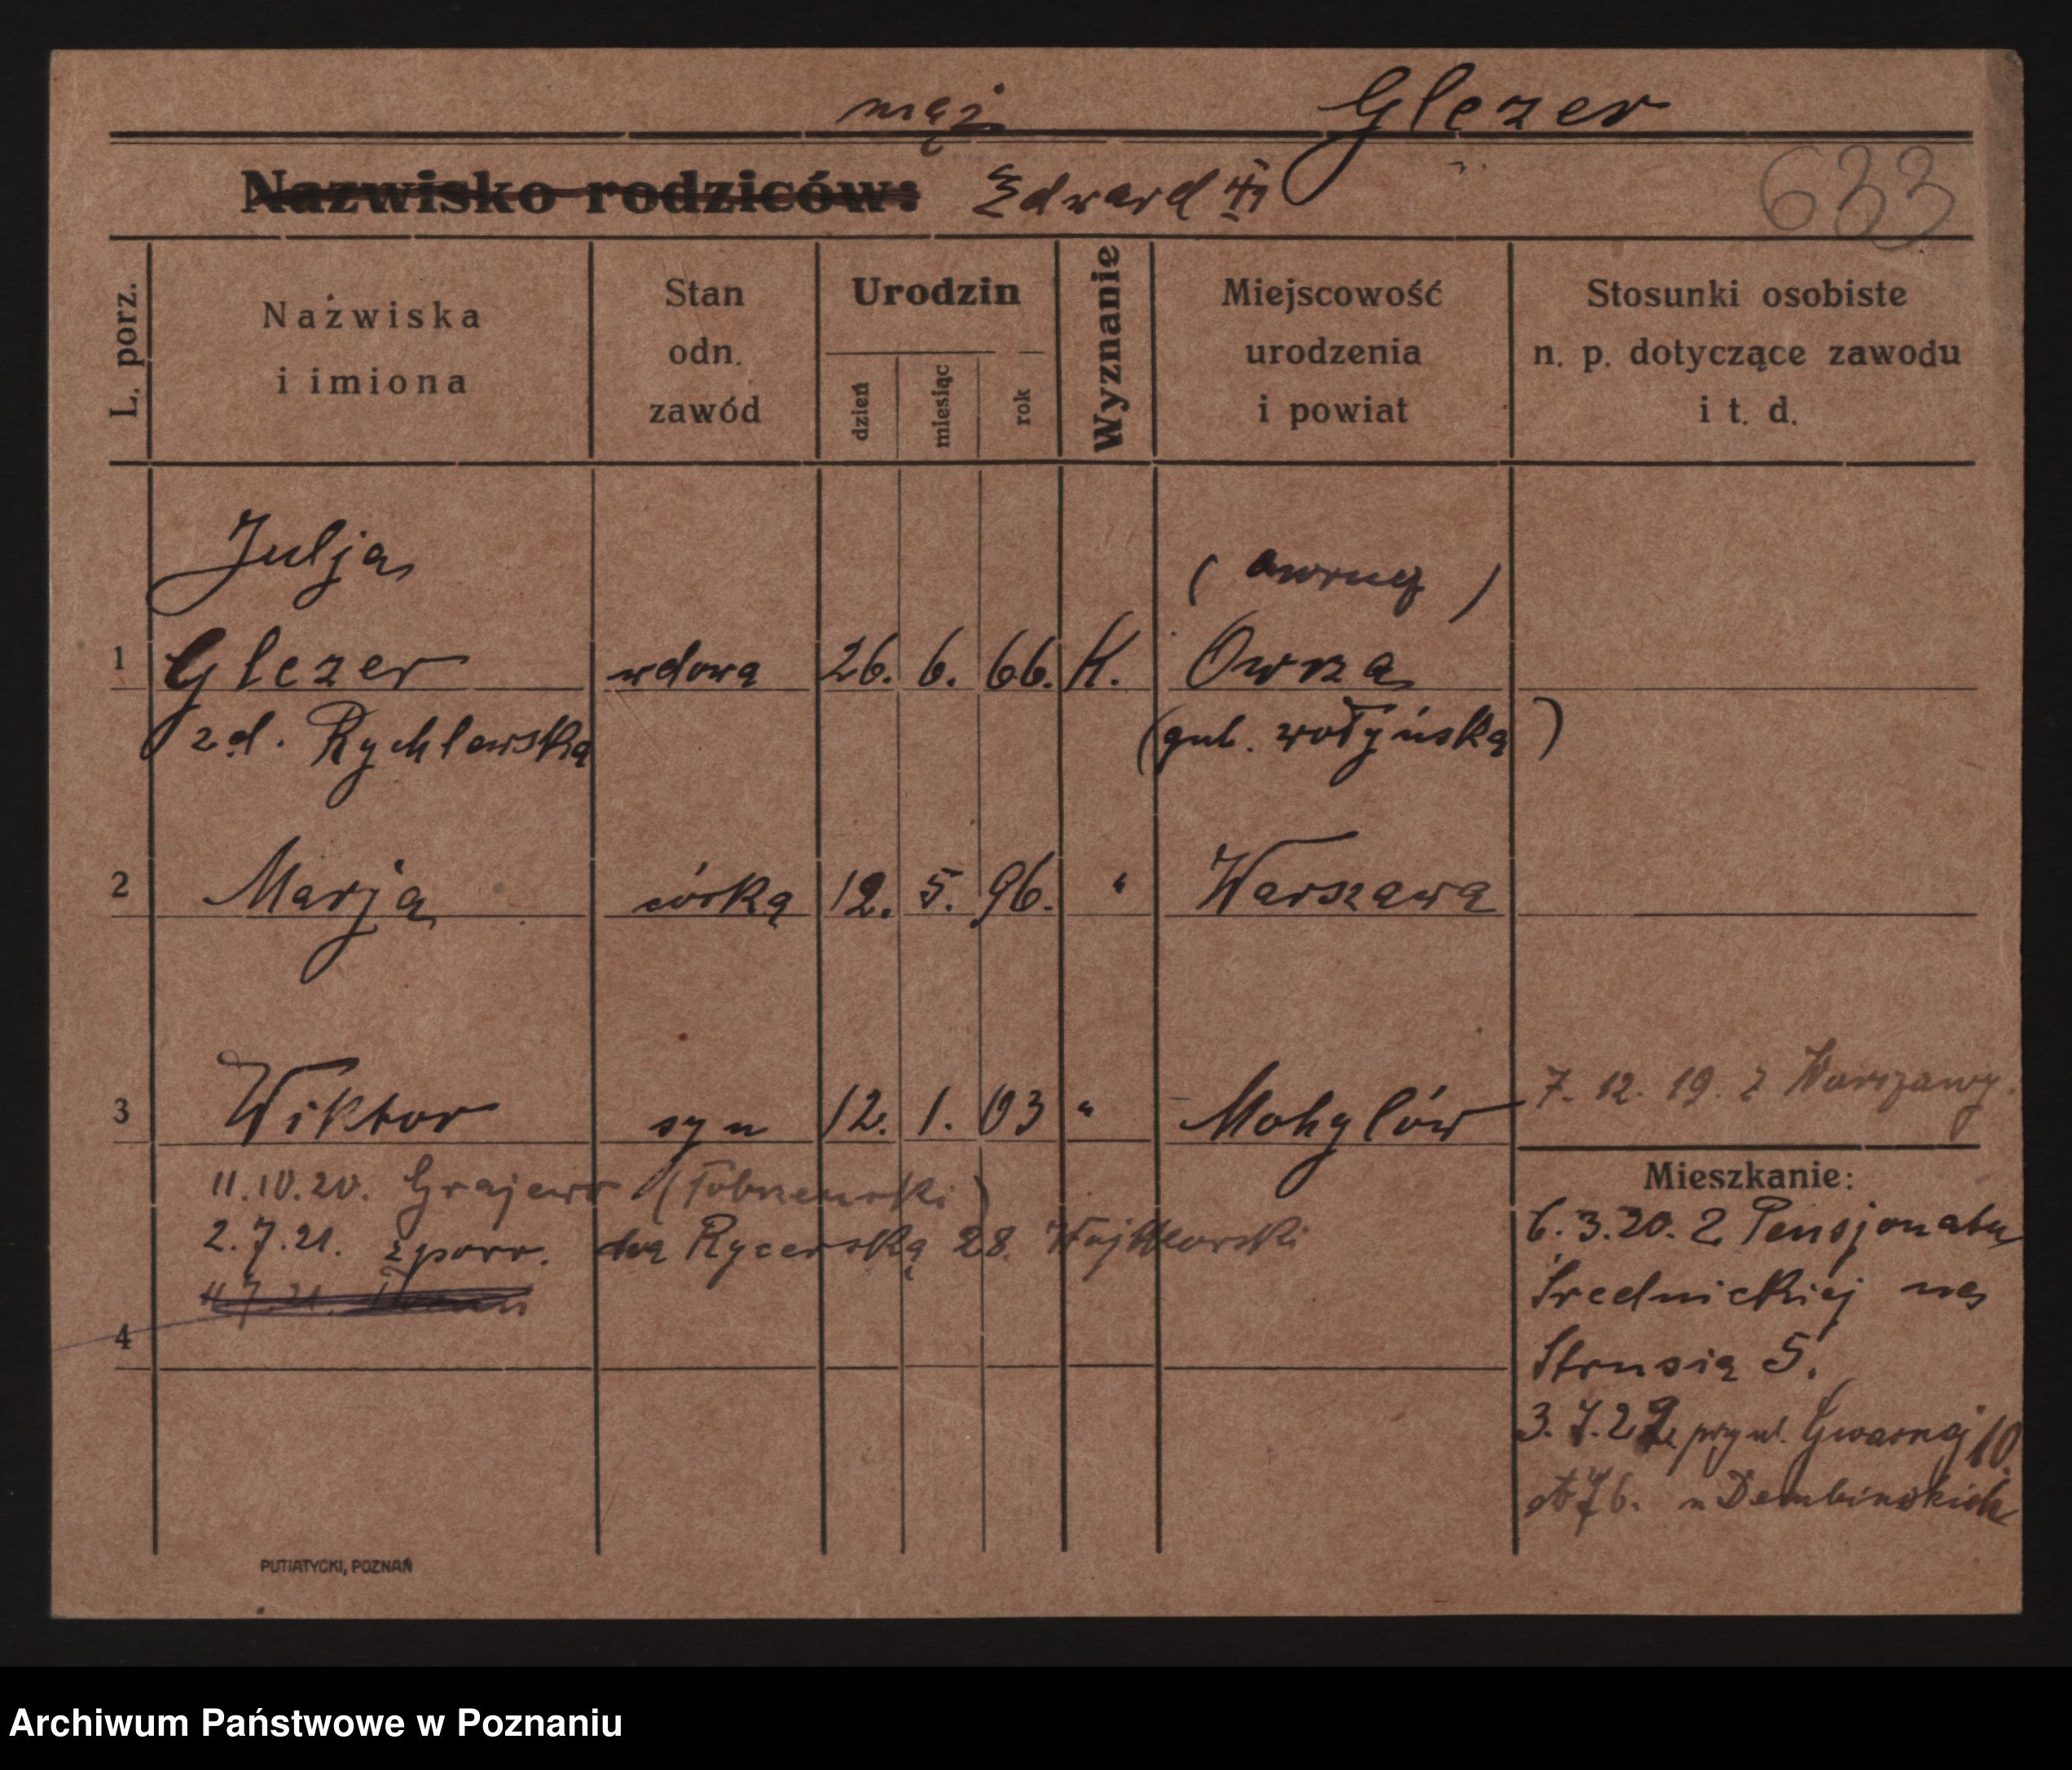 mąż Glezer
Nazwisko rodziców: Edward
633
L. porz.
Nazwiska
i imiona
Stan
odn.
zawód
Urodzin
dzień
miesiąc
rok
Wyznanie
Miejscowość
urodzenia
i powiat
Stosunki osobiste
n. p. dotyczące zawodu
i t. d.
Julja
( )
1 Glezer wdowa 26. 6. 66. K. Owrza
zd. Rychlowska (gub. wołyńska)
2 Marja córka 12. 5. 96. " Warszawa
7. 12. 19. z Warszawy.
3 Wiktor syn 12. 1. 03 " Mohylów
Mieszkanie:
11.10.20. Grajewo
2.7.21. z powr. na Rycerską 28.
4
6.3.20. z Pensjonatu
Średnickiej na
Strusia 5.
3.7.22 przy ul. Gwarnej 10
u Dembińskich
PUTIATYCKI, POZNAŃ
Archiwum Państwowe w Poznaniu